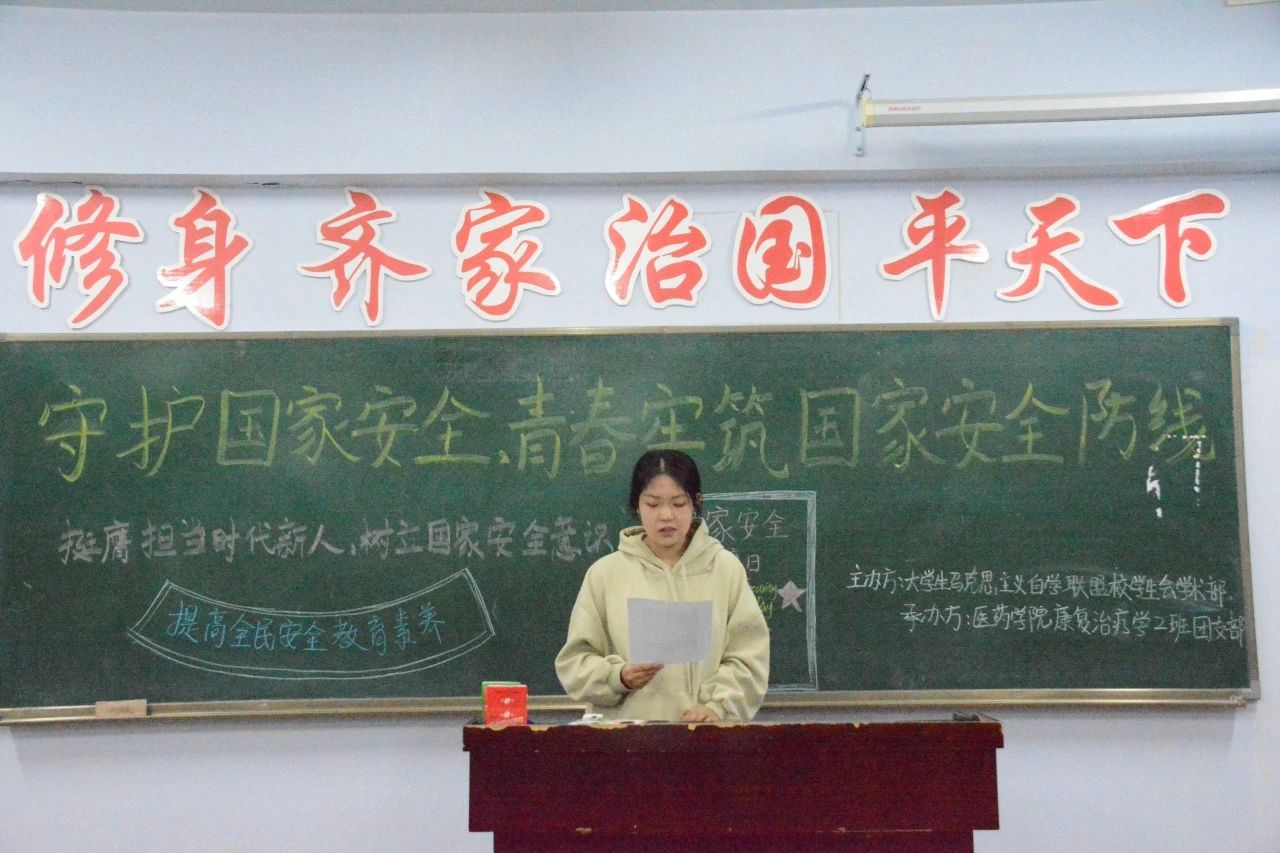 修身 齐家 治国 平天下
守护国家安全、青春牢筑国家安全防线
挺膺担当时代新人,树立国家安全意识
家安全
日
提高全民安全教育素养
主办方:大学生马克思主义自学联盟校学生会学术部
承办方:医药学院康复治疗学2班团支部